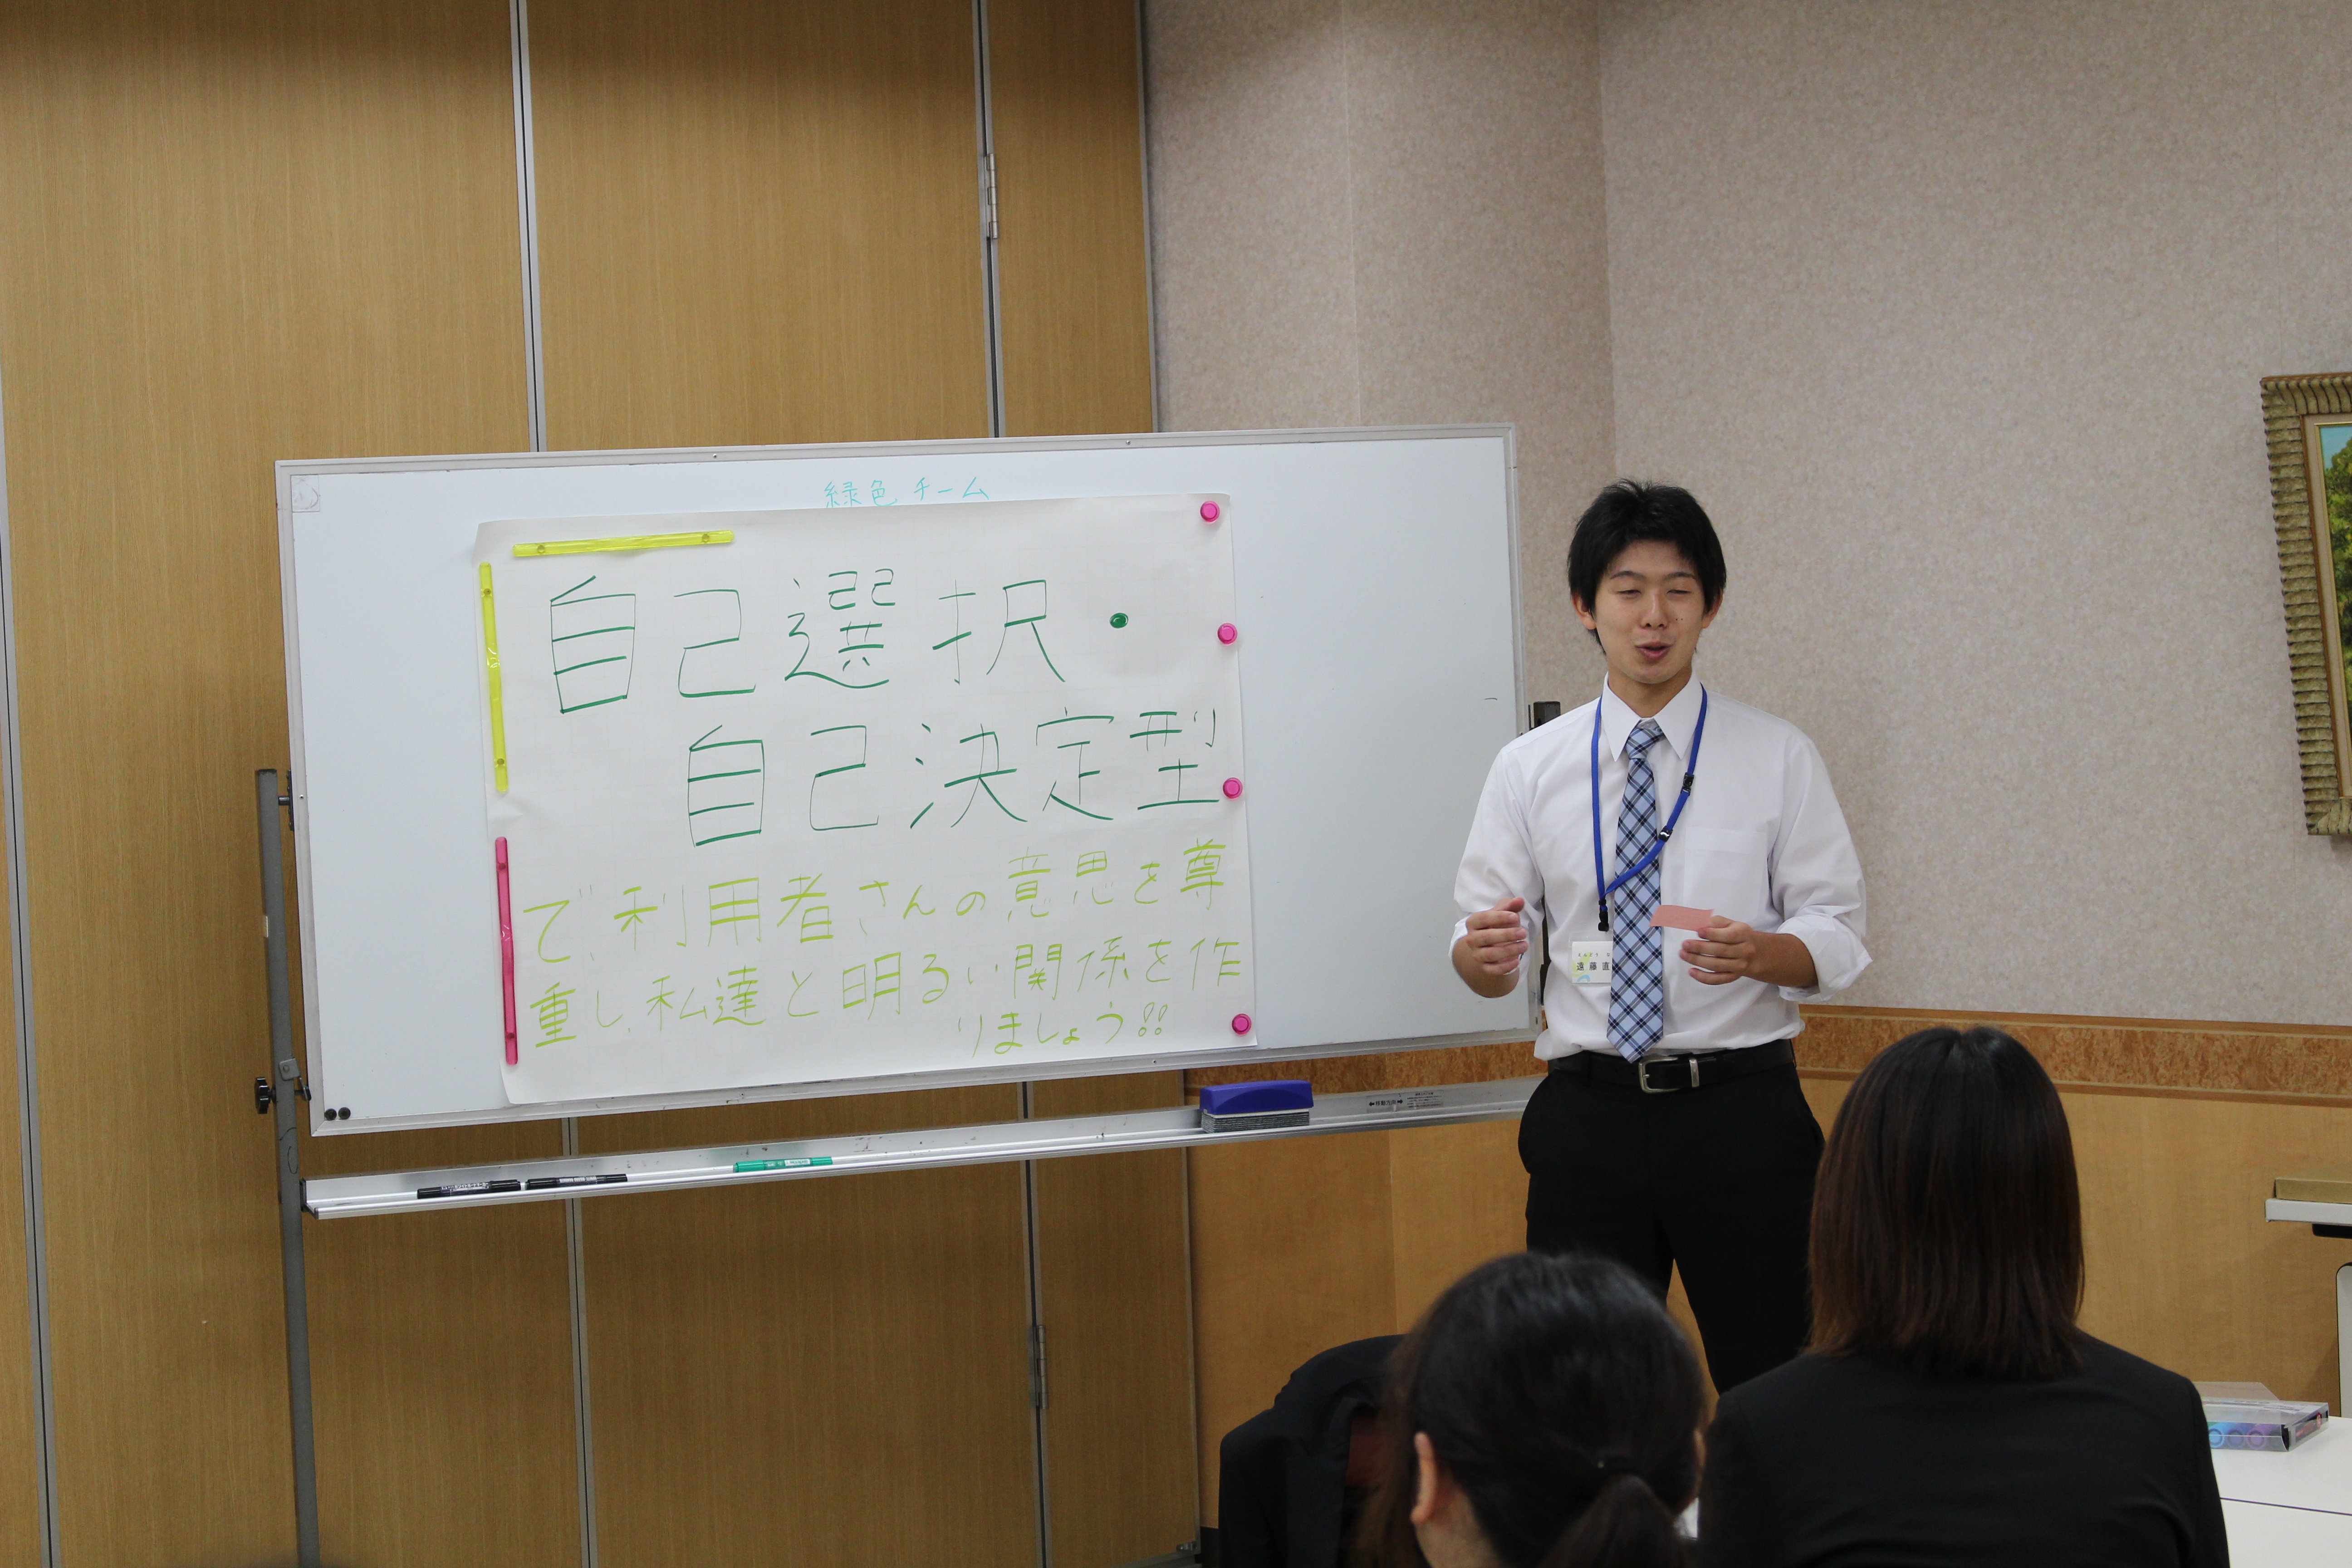 緑色チーム
自己選択・
自己決定型
で、利用者さんの意思を尊
重し、私達と明るい関係を作
りましょう!!
遠藤直